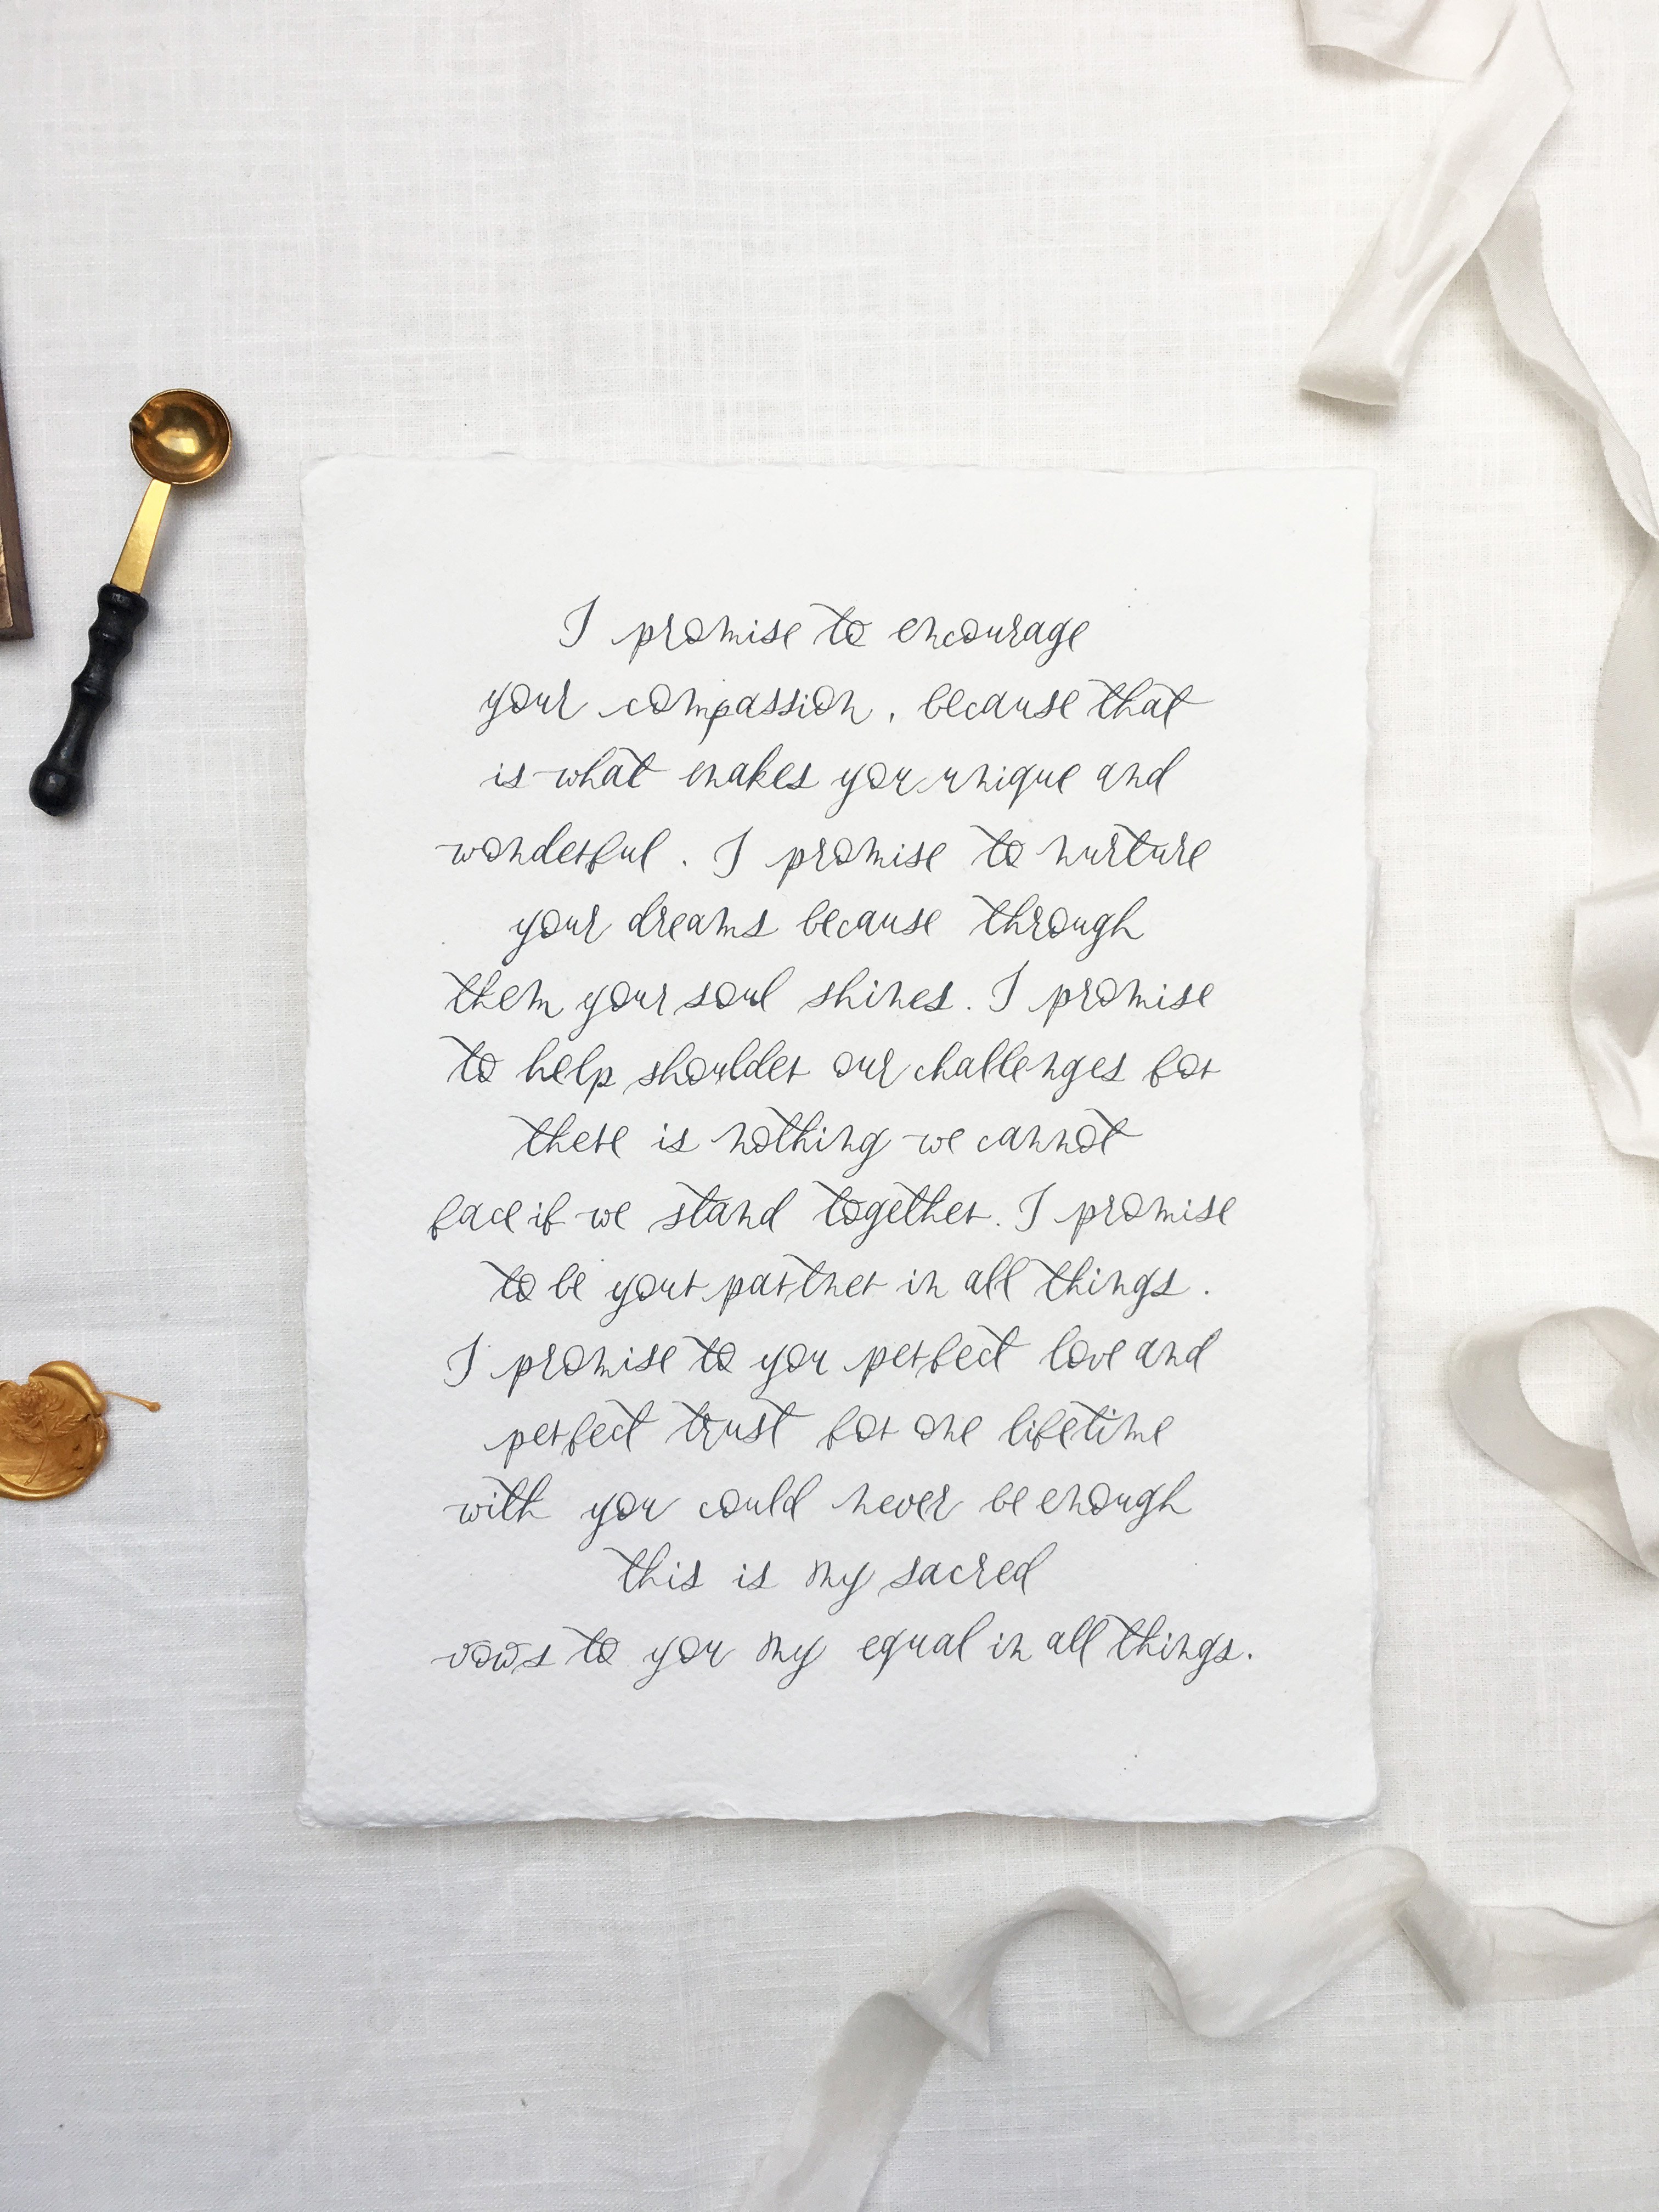 I promise to encourage
your compassion, because that
is what makes you unique and
wonderful. I promise to nurture
your dreams because through
them your soul shines. I promise
to help shoulder our challenges for
there is nothing we cannot
face if we stand together. I promise
to be your partner in all things.
I promise to you perfect love and
perfect trust for one lifetime
with you could never be enough
this is my sacred
vows to you my equal in all things.